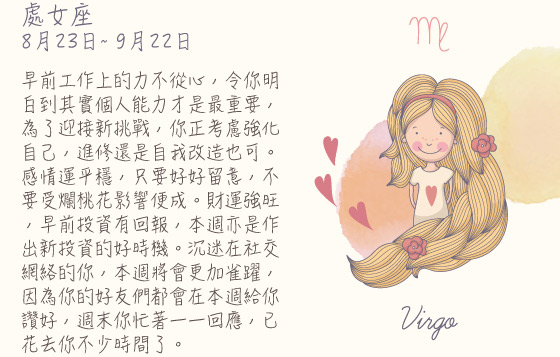 處女座
8月23日~9月22日
早前工作上的力不從心，令你明
白到其實個人能力才是最重要，
為了迎接新挑戰，你正考慮強化
自己，進修還是自我改造也可。
感情運平穩，只要好好留意，不
要受爛桃花影響便成。財運強旺
，早前投資有回報，本週亦是作
出新投資的好時機。沉迷在社交
網絡的你，本週將會更加雀躍，
因為你的好友們都會在本週給你
讚好，週末你忙著一一回應，已
花去你不少時間了。
Virgo